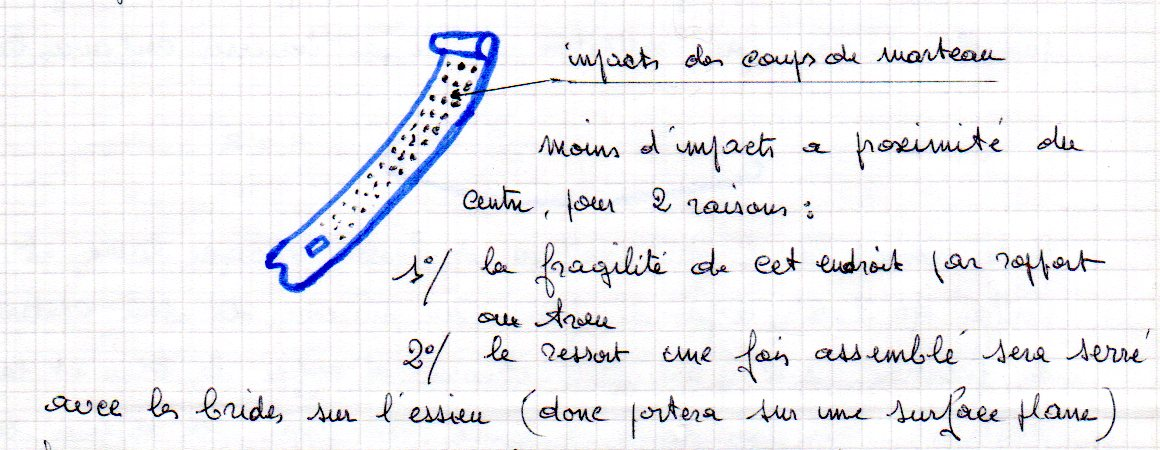 impacts des coups de marteau
moins d'impacts a proximité du
centre, pour 2 raisons :
1°/ la fragilité de cet endroit par rapport
au trou
2°/ le ressort une fois assemblé sera serré
avec les brides sur l'essieu (donc portera sur une surface plane)